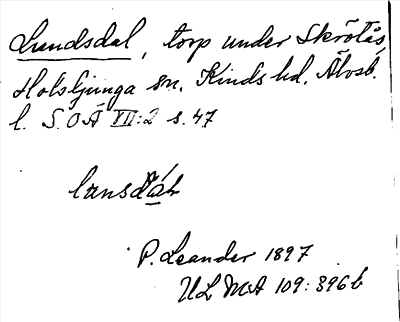 Lundsdal, torp under Skrötås,
Hölsljunga sn. Kinds hd. Älvsb.
l. S.O.Ä VII:2 s. 47
P. Leander 1897
ULMA 109:396b